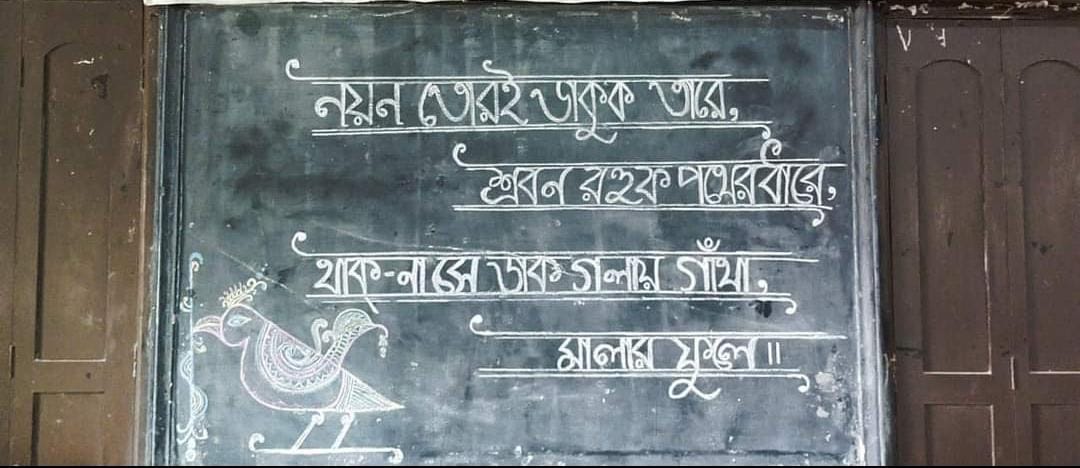 নয়ন তোরই ডাকুক তারে,
শ্রবন রহুক পথেরধারে,
থাক্-না সে ডাক গলায় গাঁথা,
মালার ফুলে॥